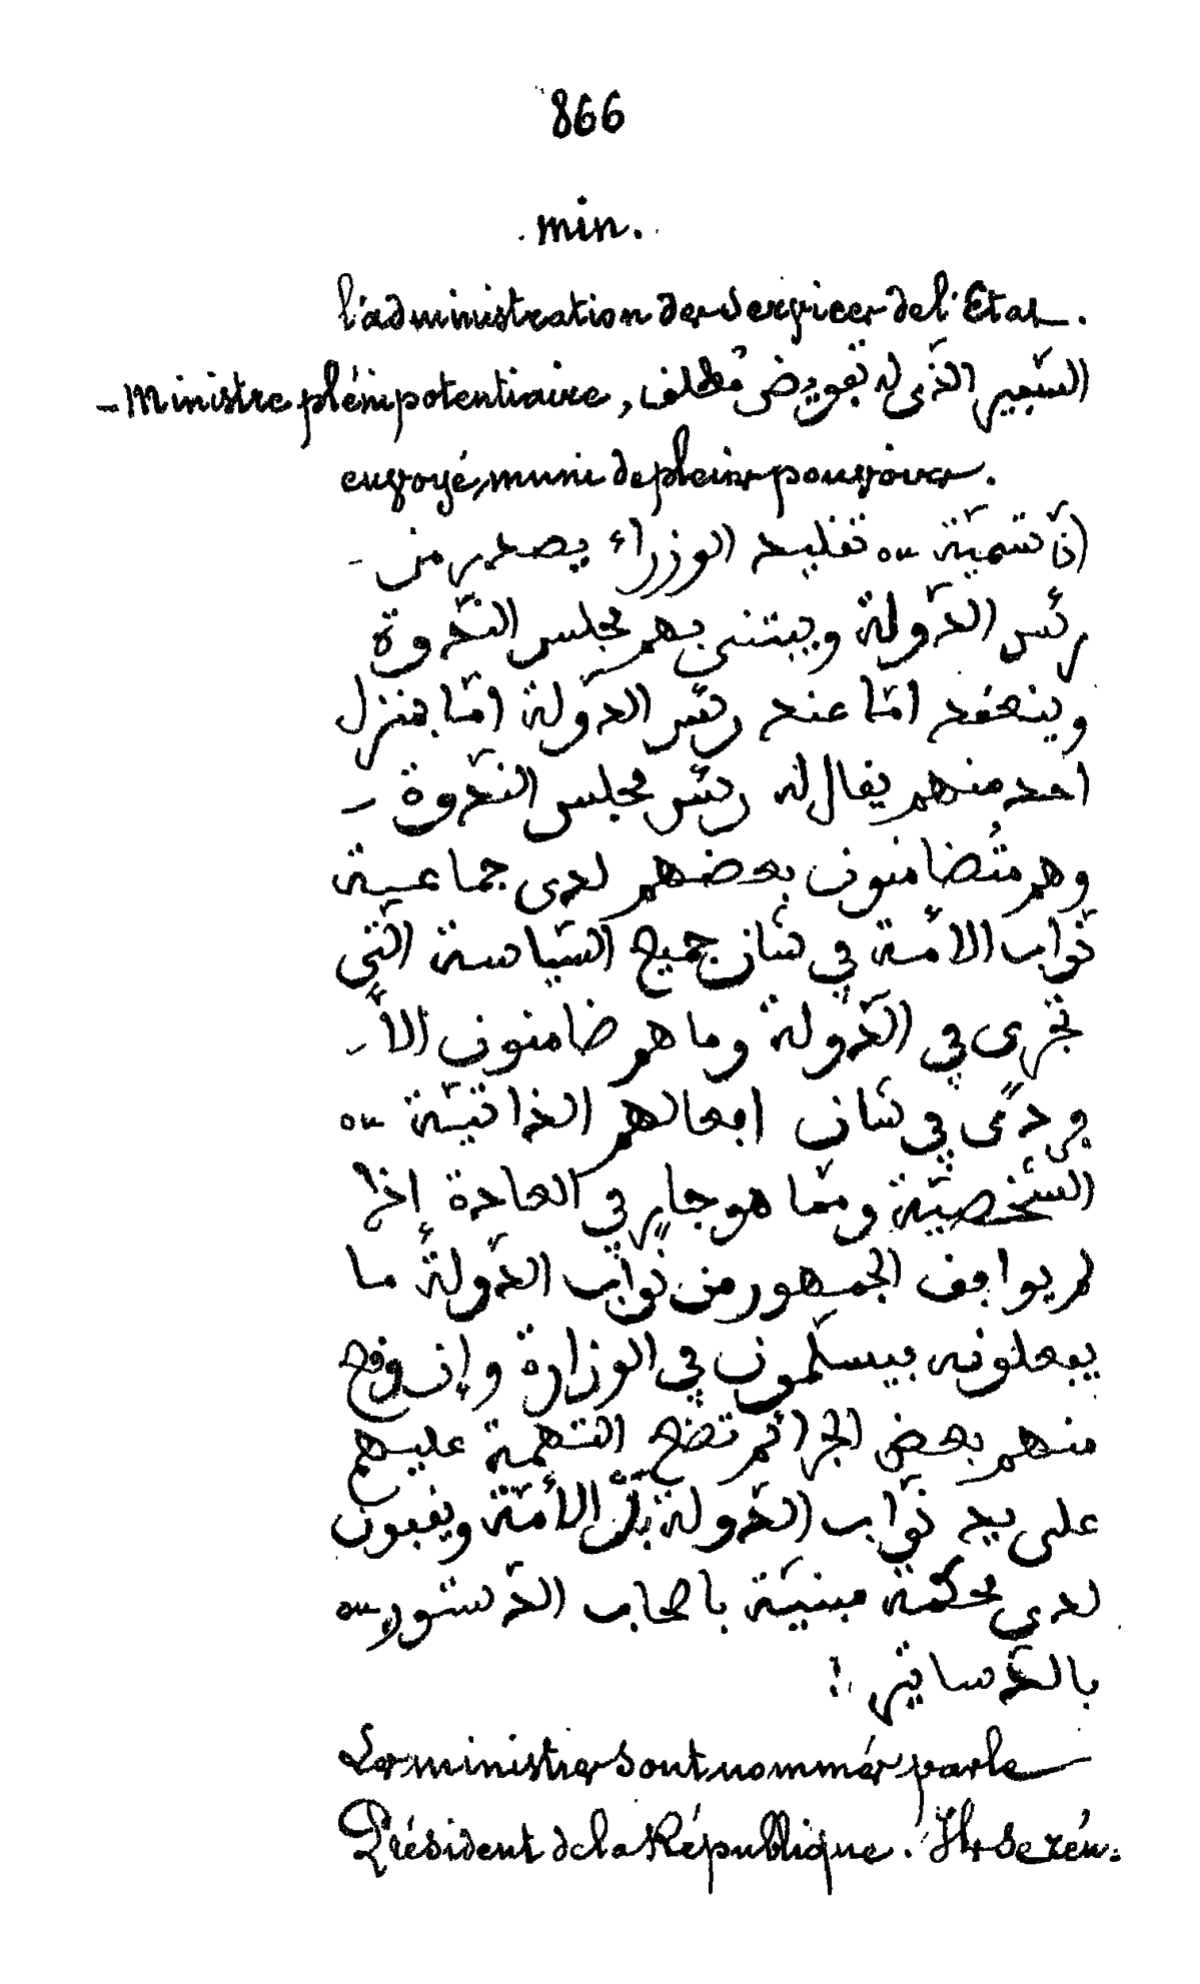 866
min.
l'administration des services de l'Etat.
- Ministre plénipotentiaire, السّفير الذّي له تفويض مُطلق
envoyé, muni de pleins pouvoirs.
انّ تسميّة ou تقليد الوزراء يصدر من -
رئس الدّولة ويبتنى بهم مجلس النّدوة
وينعقد امّا عند رئس الدّولة امّا بمنزل
احد منهم يقال له رئس مجلس النّدوة -
وهم مُتضامنون بعضهم لدى جماعية
نوّاب الأمّة في شان جميع السّياسة التّي
تجرى في الدّولة وما هم ضامنون الاّ -
فردًى في شان افعالهم الذاتيّة ou
الشّخصيّة وممّا هو جارٍ في العادة إذا
لم يوافق الجمهور من نوّاب الدّولة ما
يفعلونه فيسلّمون في الوزارة وإن وقع
منهم بعض الجرائم تضع التّهمة عليهم
على يد نوّاب الدّولة بل الأمّة ويقبون
لدى محكمة مبنيّة باصحاب الدّستور ou
بالدّساتير !
Les ministres sont nommés par le
Président de la République. Ils se réu-